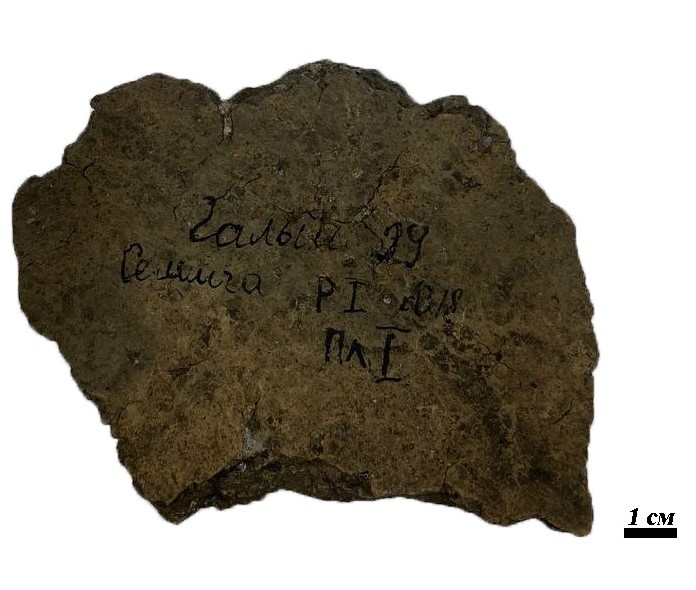 Галыш 99
Селища
Р I кв 18
Пл I
1 см